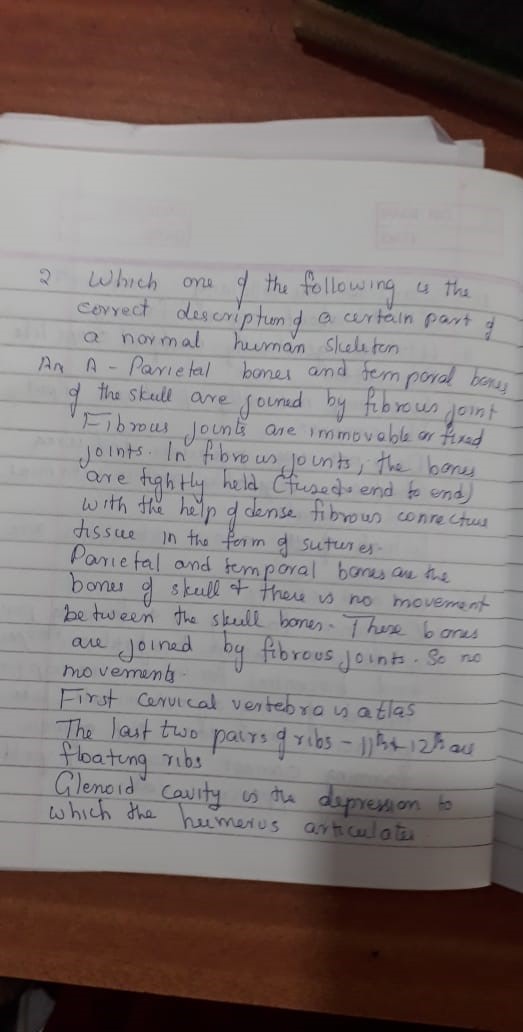 2 Which one of the following is the
correct description of a certain part of
a normal human skeleton
An A - Parietal bones and temporal bones
of the skull are joined by fibrous joint
Fibrous joints are immovable or fixed
joints. In fibrous joints, the bones
are tightly held (fused to end to end)
with the help of dense fibrous connective
tissue in the form of sutures.
Parietal and temporal bones are the
bones of skull & there is no movement
between the skull bones. These bones
are joined by fibrous joints. So no
movements.
First cervical vertebra is atlas
The last two pairs of ribs - 11th & 12th are
floating ribs
Glenoid cavity is the depression to
which the humerus articulates